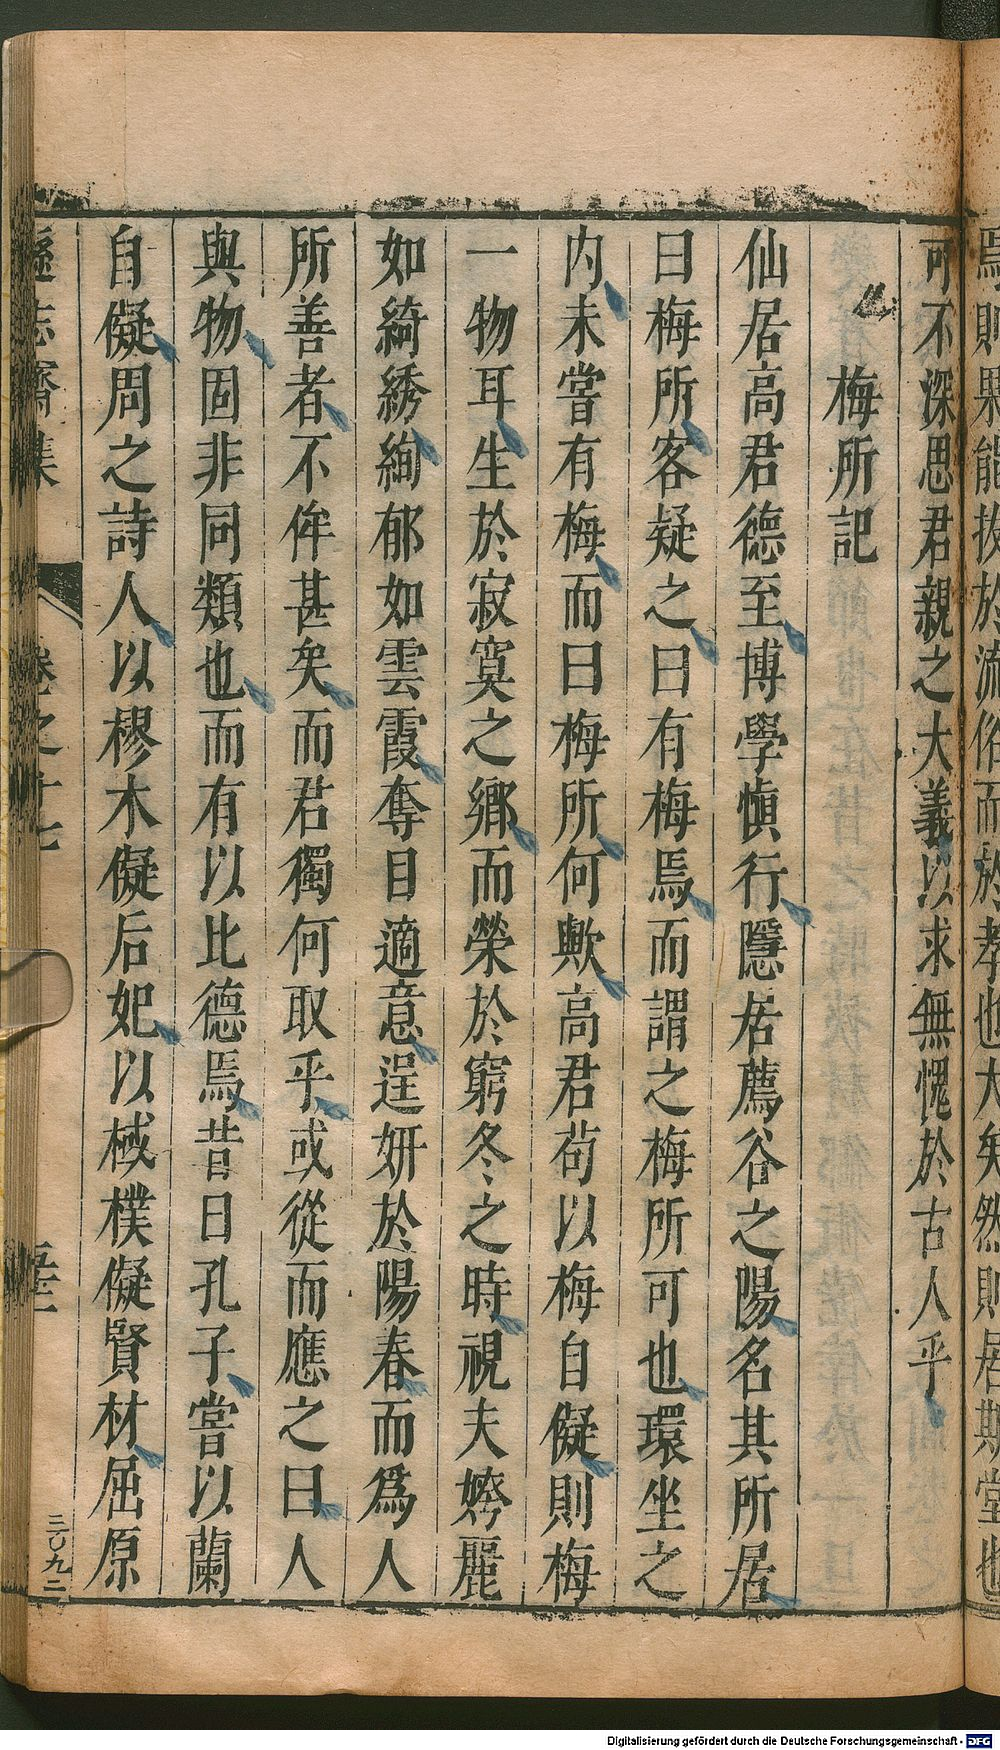 焉則果能拔於流俗而於孝也大矣然則居斯堂也
可不深思君親之大義以求無愧於古人乎
梅所記
仙居高君德至博學愼行隱居薦谷之陽名其所居
曰梅所客疑之曰有梅焉而謂之梅所可也環坐之
内未嘗有梅而曰梅所何歟高君苟以梅自儗則梅
一物耳生於寂寞之鄉而榮於窮冬之時視夫姱麗
如綺綉絢郁如雲霞奪目適意逞妍於陽春而爲人
所善者不侔甚矣而君獨何取乎或從而應之曰人
與物固非同類也而有以比德焉昔日孔子嘗以蘭
自儗周之詩人以樛木儗后妃以棫樸儗賢材屈原
遜志齋集
卷之十七
三〇九二
Digitalisierung gefördert durch die Deutsche Forschungsgemeinschaft - DFG